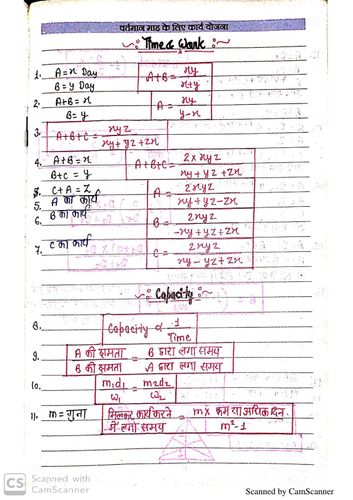 वर्तमान माह के लिए कार्य योजना
Time & Work
1. A = x Day
B = y Day
A+B = xy / x+y
2. A+B = x
B = y
A = xy / y-x
3. A+B+C = xyz / xy+yz+zx
4. A+B = x
B+C = y
C+A = z
A+B+C = 2×xyz / xy+yz+zx
5. A का कार्य
A = 2xyz / xy+yz-zx
6. B का कार्य
B = 2xyz / -xy+yz+zx
7. C का कार्य
C = 2xyz / xy-yz+zx
Capacity
8. Capacity ∝ 1 / Time
9. A की क्षमता / B की क्षमता = B द्वारा लगा समय / A द्वारा लगा समय
10. m1d1 / w1 = m2d2 / w2
11. m = गुना
मिलकर कार्य करने में लगा समय = m × कम या अधिक दिन / m²-1
CS Scanned with
CamScanner
Scanned by CamScanner